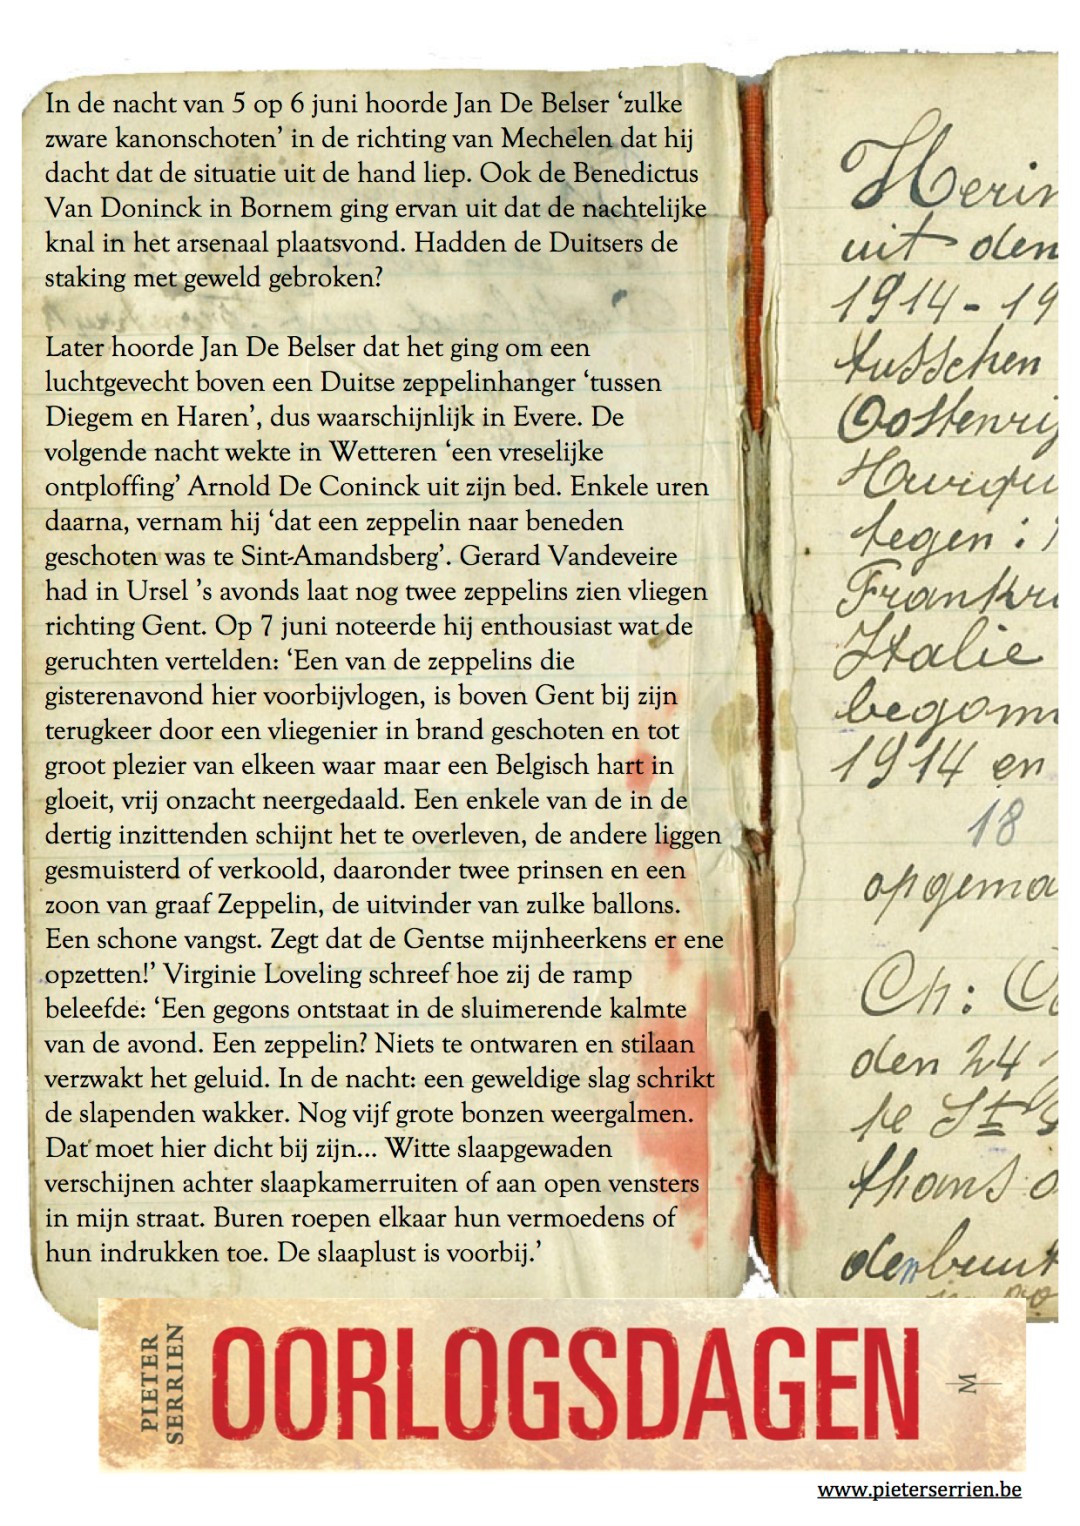 In de nacht van 5 op 6 juni hoorde Jan De Belser ‘zulke
zware kanonschoten’ in de richting van Mechelen dat hij
dacht dat de situatie uit de hand liep. Ook de Benedictus
Van Doninck in Bornem ging ervan uit dat de nachtelijke
knal in het arsenaal plaatsvond. Hadden de Duitsers de
staking met geweld gebroken?
Later hoorde Jan De Belser dat het ging om een
luchtgevecht boven een Duitse zeppelinhanger ‘tussen
Diegem en Haren’, dus waarschijnlijk in Evere. De
volgende nacht wekte in Wetteren ‘een vreselijke
ontploffing’ Arnold De Coninck uit zijn bed. Enkele uren
daarna, vernam hij ‘dat een zeppelin naar beneden
geschoten was te Sint-Amandsberg’. Gerard Vandeveire
had in Ursel ’s avonds laat nog twee zeppelins zien vliegen
richting Gent. Op 7 juni noteerde hij enthousiast wat de
geruchten vertelden: ‘Een van de zeppelins die
gisterenavond hier voorbijvlogen, is boven Gent bij zijn
terugkeer door een vliegenier in brand geschoten en tot
groot plezier van elkeen waar maar een Belgisch hart in
gloeit, vrij onzacht neergedaald. Een enkele van de in de
dertig inzittenden schijnt het te overleven, de andere liggen
gesmuisterd of verkoold, daaronder twee prinsen en een
zoon van graaf Zeppelin, de uitvinder van zulke ballons.
Een schone vangst. Zegt dat de Gentse mijnheerkens er ene
opzetten!’ Virginie Loveling schreef hoe zij de ramp
beleefde: ‘Een gegons ontstaat in de sluimerende kalmte
van de avond. Een zeppelin? Niets te ontwaren en stilaan
verzwakt het geluid. In de nacht: een geweldige slag schrikt
de slapenden wakker. Nog vijf grote bonzen weergalmen.
Dat moet hier dicht bij zijn... Witte slaapgewaden
verschijnen achter slaapkamerruiten of aan open vensters
in mijn straat. Buren roepen elkaar hun vermoedens of
hun indrukken toe. De slaaplust is voorbij.’
Herin
uit den
1914-19
tusschen
Oostenrij
tegen :
Frankr
Italie
begom
1914 en
18
opgema
Ch:
den 24
te St
thans
PIETER
SERRIEN
OORLOGSDAGEN
M
www.pieterserrien.be